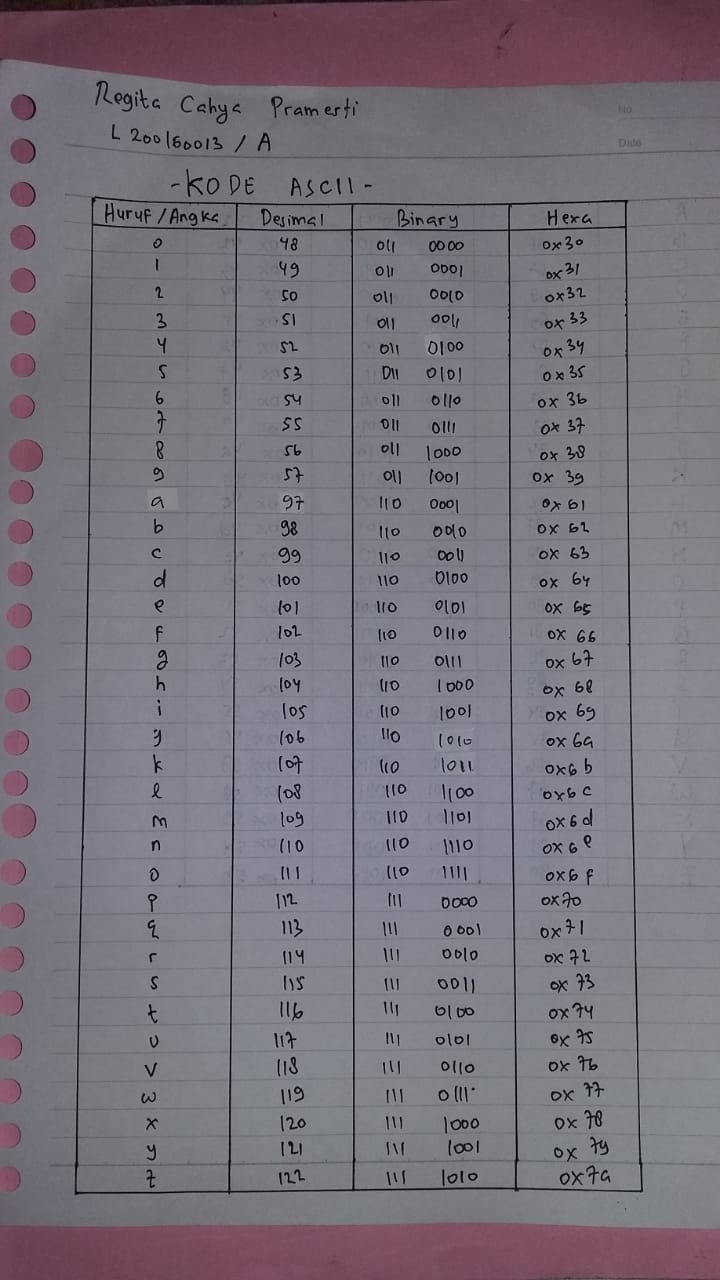 No.
Date
Regita Cahya Pramerti
L 200160013 / A
- KODE ASCII -
Huruf / Angka Desimal Binary Hexa
0 48 011 0000 0x30
1 49 011 0001 0x31
2 50 011 0010 0x32
3 51 011 0011 0x33
4 52 011 0100 0x34
5 53 011 0101 0x35
6 54 011 0110 0x36
7 55 011 0111 0x37
8 56 011 1000 0x38
9 57 011 1001 0x39
a 97 110 0001 0x61
b 98 110 0010 0x62
c 99 110 0011 0x63
d 100 110 0100 0x64
e 101 110 0101 0x65
f 102 110 0110 0x66
g 103 110 0111 0x67
h 104 110 1000 0x68
i 105 110 1001 0x69
y 106 110 1010 0x6a
k 107 110 1011 0x6b
l 108 110 1100 0x6c
m 109 110 1101 0x6d
n 110 110 1110 0x6e
o 111 110 1111 0x6f
p 112 111 0000 0x70
q 113 111 0001 0x71
r 114 111 0010 0x72
s 115 111 0011 0x73
t 116 111 0100 0x74
u 117 111 0101 0x75
v 118 111 0110 0x76
w 119 111 0111 0x77
x 120 111 1000 0x78
y 121 111 1001 0x79
z 122 111 1010 0x7a